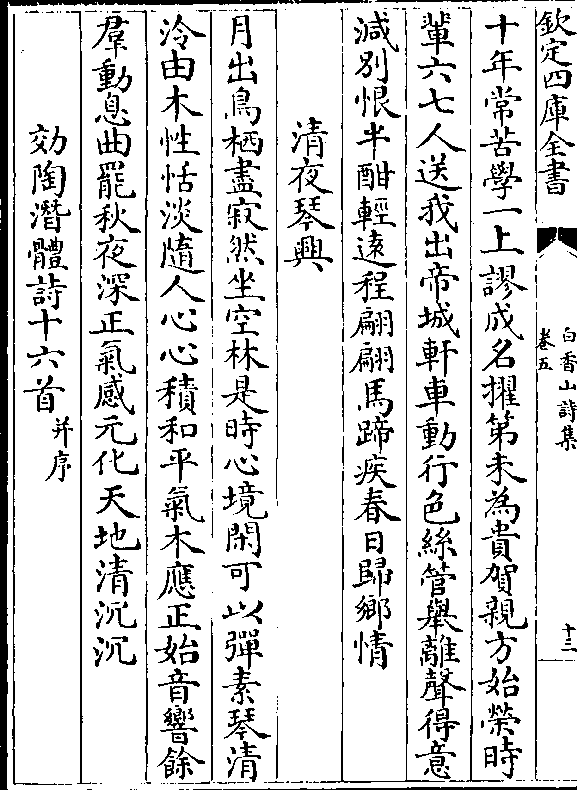 欽定四庫全書
白香山詩集
卷五
十三
十年常苦學一上謬成名擢第未為貴賀親方始榮時
輩六七人送我出帝城軒車動行色絲管舉離聲得意
減別恨半酣輕遠程翩翩馬蹄疾春日歸鄉情
清夜琴興
月出鳥栖盡寂然坐空林是時心境閑可以彈素琴清
泠由木性恬淡隨人心心積和平氣木應正始音響餘
羣動息曲罷秋夜深正氣感元化天地清沉沉
効陶潛體詩十六首并序